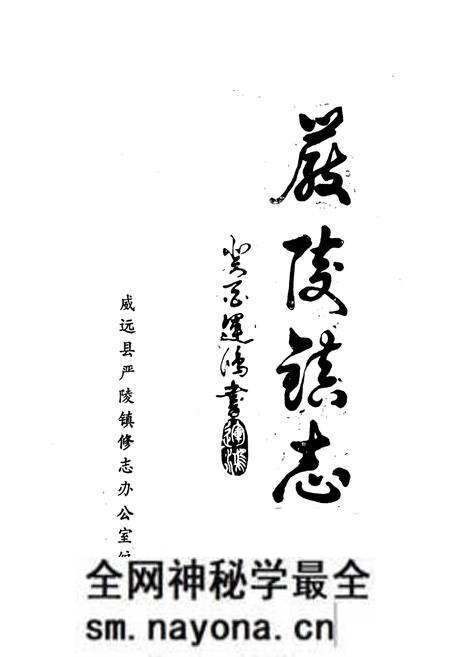 嚴陵镇志
癸酉運鴻書
運鴻
威远县严陵镇修志办公室编
全网神秘学最全
sm.nayona.cn